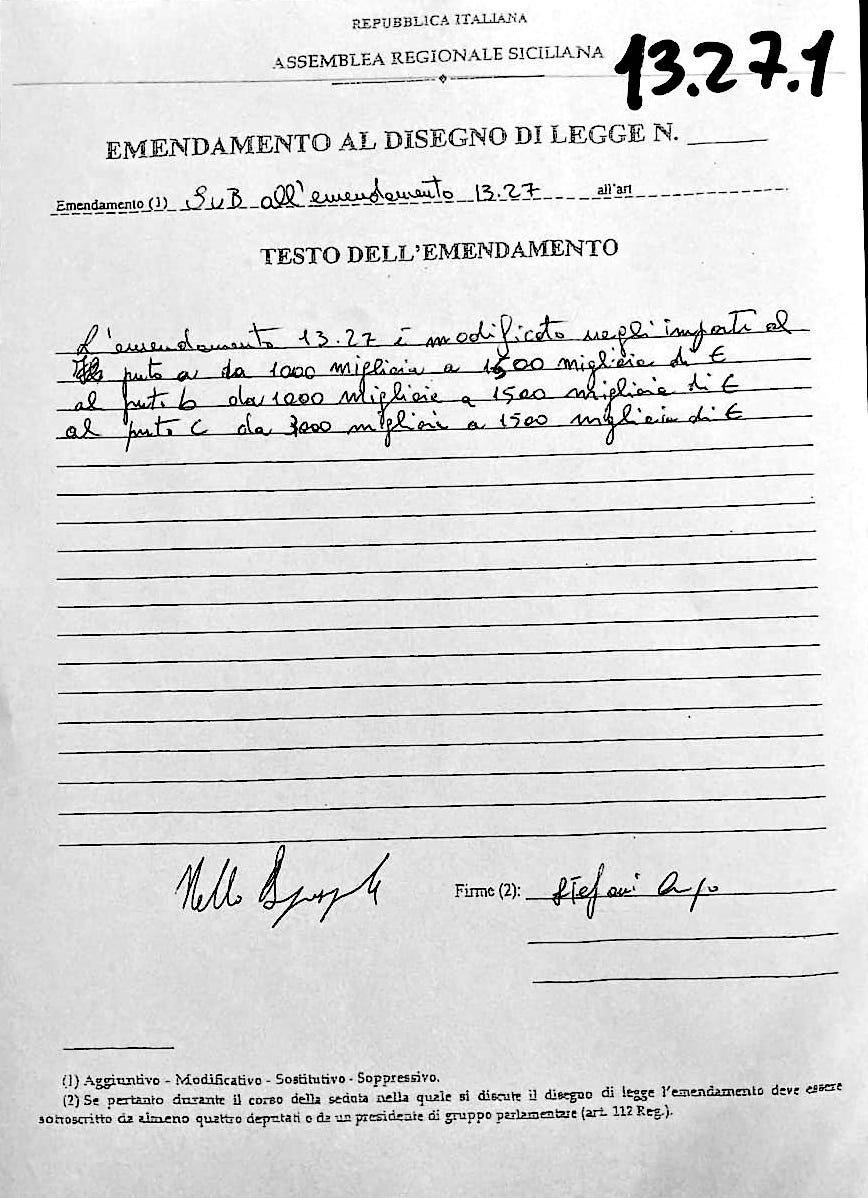 REPUBBLICA ITALIANA
ASSEMBLEA REGIONALE SICILIANA
13.27.1
EMENDAMENTO AL DISEGNO DI LEGGE N. ______
Emendamento (1) SUB all'emendamento 13.27 all'art
TESTO DELL'EMENDAMENTO
L'emendamento 13.27 è modificato negli importi al
puto a da 1000 migliaia a 1500 migliaia di €
al puto b da 1000 migliaie a 1500 migliaie di €
al puto C da 3000 migliaie a 1500 migliaia di €
Nello
Firme (2): Stefani
(1) Aggiuntivo - Modificativo - Sostitutivo - Soppressivo.
(2) Se pertanto durante il corso della seduta nella quale si discute il disegno di legge l'emendamento deve essere
sottoscritto da almeno quattro deputati o da un presidente di gruppo parlamentare (art. 112 Reg.).